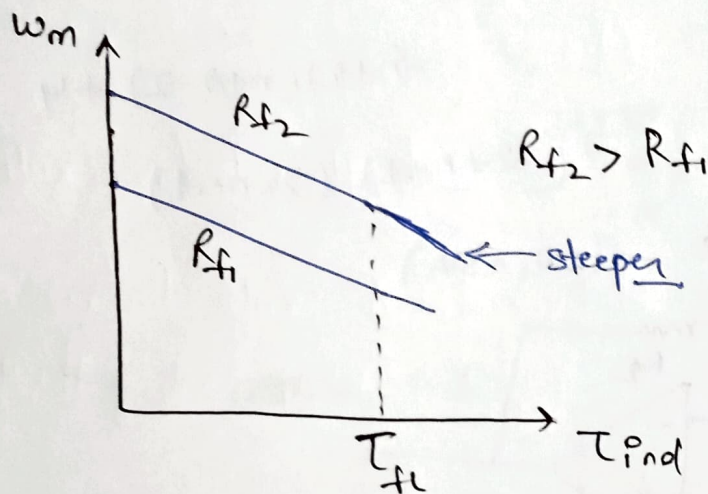 ωm
Rf2
Rf2 > Rf1
Rf1
← steeper
τfl
τind